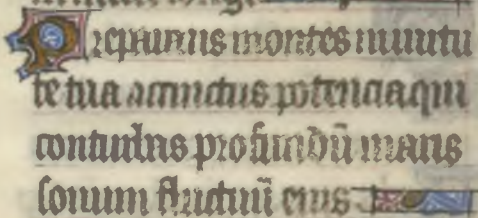 Preparans montes in uirtu
te tua accinctus potencia qui
conturbas profundū maris
sonum fluctuū eius